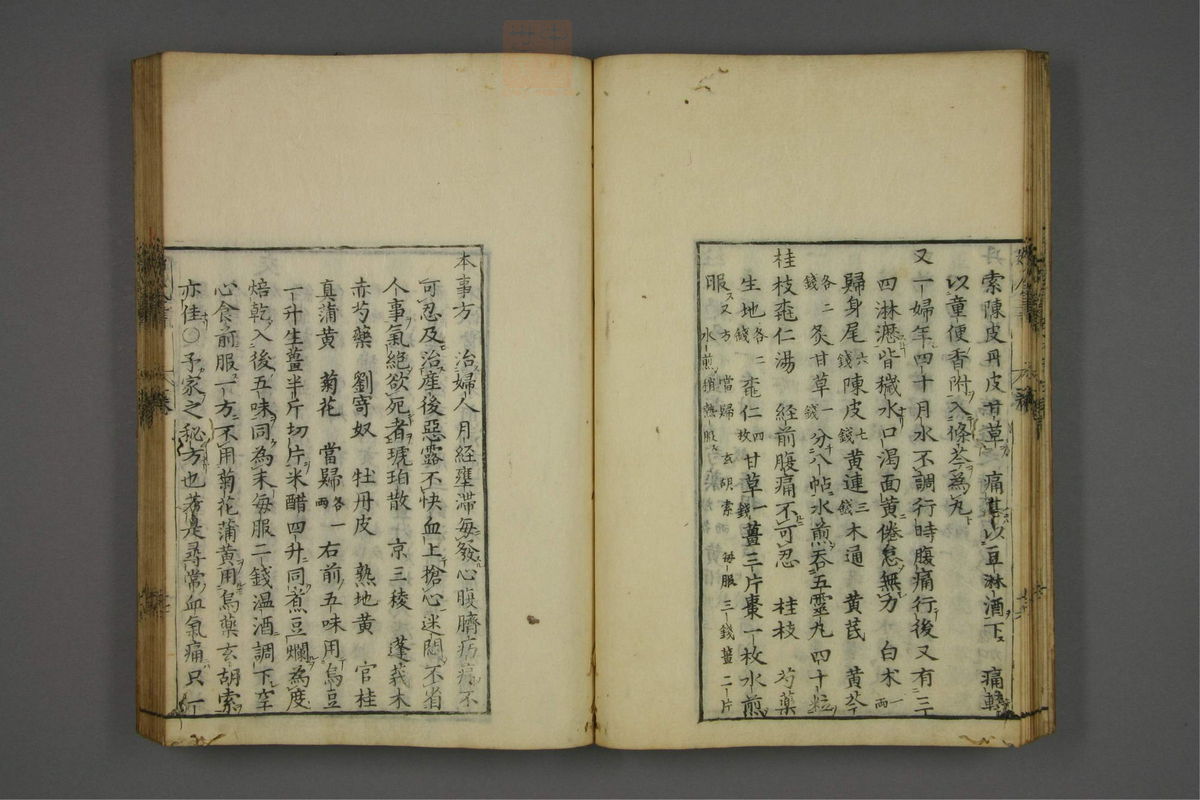 索陳皮丹皮甘草 痛甚以豆淋酒下 痛輕
以童便香附入條芩為丸
又一婦年四十月水不調行時腹痛行後又有三
四淋瀝皆穢水口渴面黄倦怠無力 白术一兩
歸身尾六錢陳皮七錢黄連三錢木通 黄芪 黄芩
各二錢炙甘草一錢分八帖水煎吞五靈丸四十粒
桂枝桃仁湯 経前腹痛不可忍 桂枝 芍藥
生地各二錢桃仁四枚甘草一錢薑三片棗一枚水煎
服又方當歸 玄胡索 每服三錢薑二片水煎稍熱服
本事方 治婦人月経壅滞每發心腹臍㽲痛不
可忍及治産後惡露不快血上搶心迷悶不省
人事氣絶欲死者琥珀散 京三棱 蓬莪术
赤芍藥 劉寄奴 牡丹皮 熟地黄 官桂
真蒲黄 菊花 當歸各一兩右前五味用烏豆
一升生薑半斤切片米醋四升同煮豆爛為度
焙乾入後五味同為末每服二錢温酒調下空
心食前服一方不用菊花蒲黄用烏藥玄胡索
亦佳○予家之秘方也若是尋常血氣痛只一